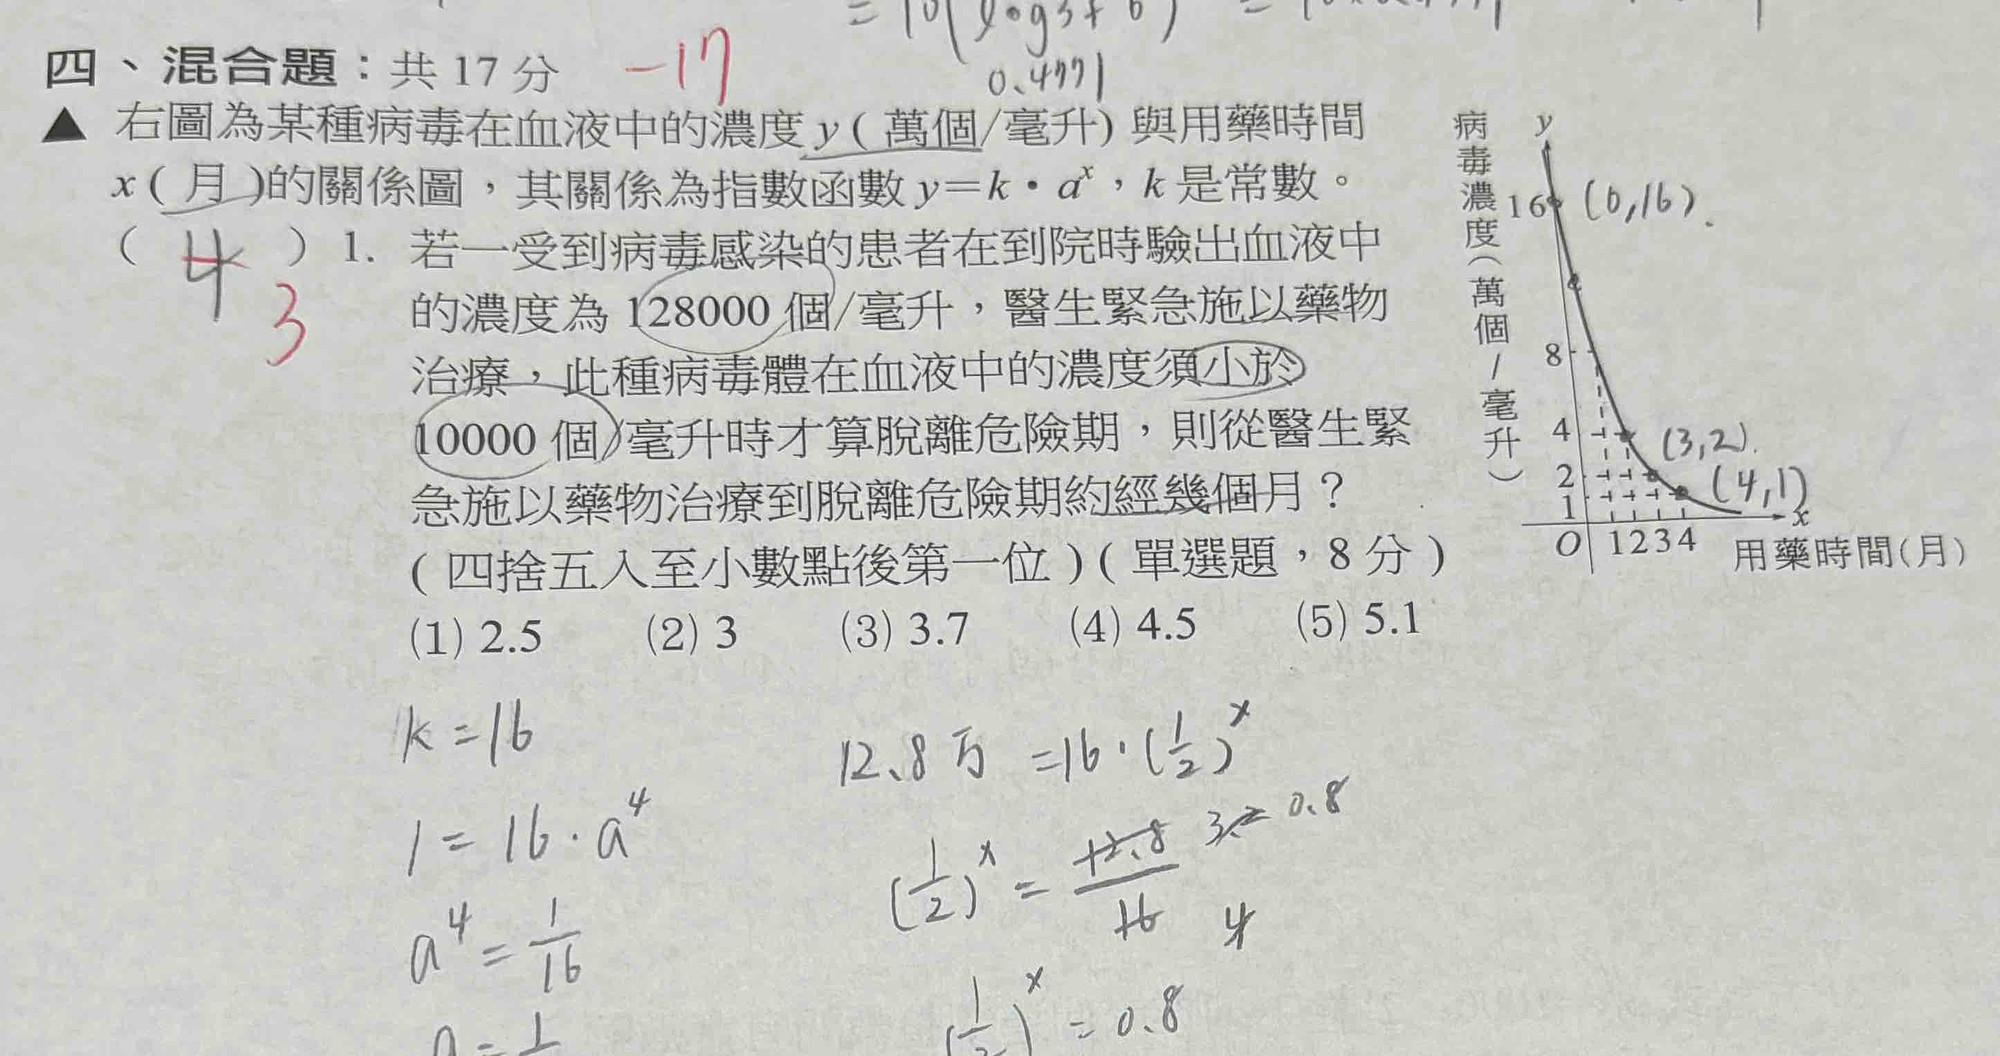 四、混合題：共 17 分 -17
0.4771
▲ 右圖為某種病毒在血液中的濃度 y ( 萬個/毫升) 與用藥時間
x ( 月 )的關係圖，其關係為指數函數 y＝k・aˣ，k 是常數。
( 4 ) 1. 若一受到病毒感染的患者在到院時驗出血液中
3
的濃度為 128000 個/毫升，醫生緊急施以藥物
治療，此種病毒體在血液中的濃度須小於
10000 個/毫升時才算脫離危險期，則從醫生緊
急施以藥物治療到脫離危險期約經幾個月？
( 四捨五入至小數點後第一位 ) ( 單選題，8 分 )
(1) 2.5 (2) 3 (3) 3.7 (4) 4.5 (5) 5.1
病毒濃度(萬個/毫升)
y
16 (0,16)
8
4 (3,2)
2 (4,1)
1
x
O 1 2 3 4 用藥時間(月)
k=16
1=16·a⁴
a⁴=1/16
12.8万 =16·(1/2)ˣ
(1/2)ˣ = 12.8/16 3.2 0.8
4
(1/2)ˣ = 0.8